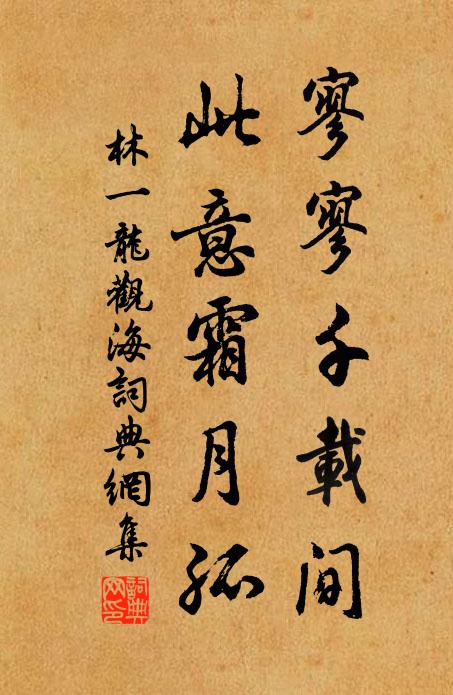 寥寥千載间
此意霜月孤
林一龍觀海詞典網集
詞典
网印